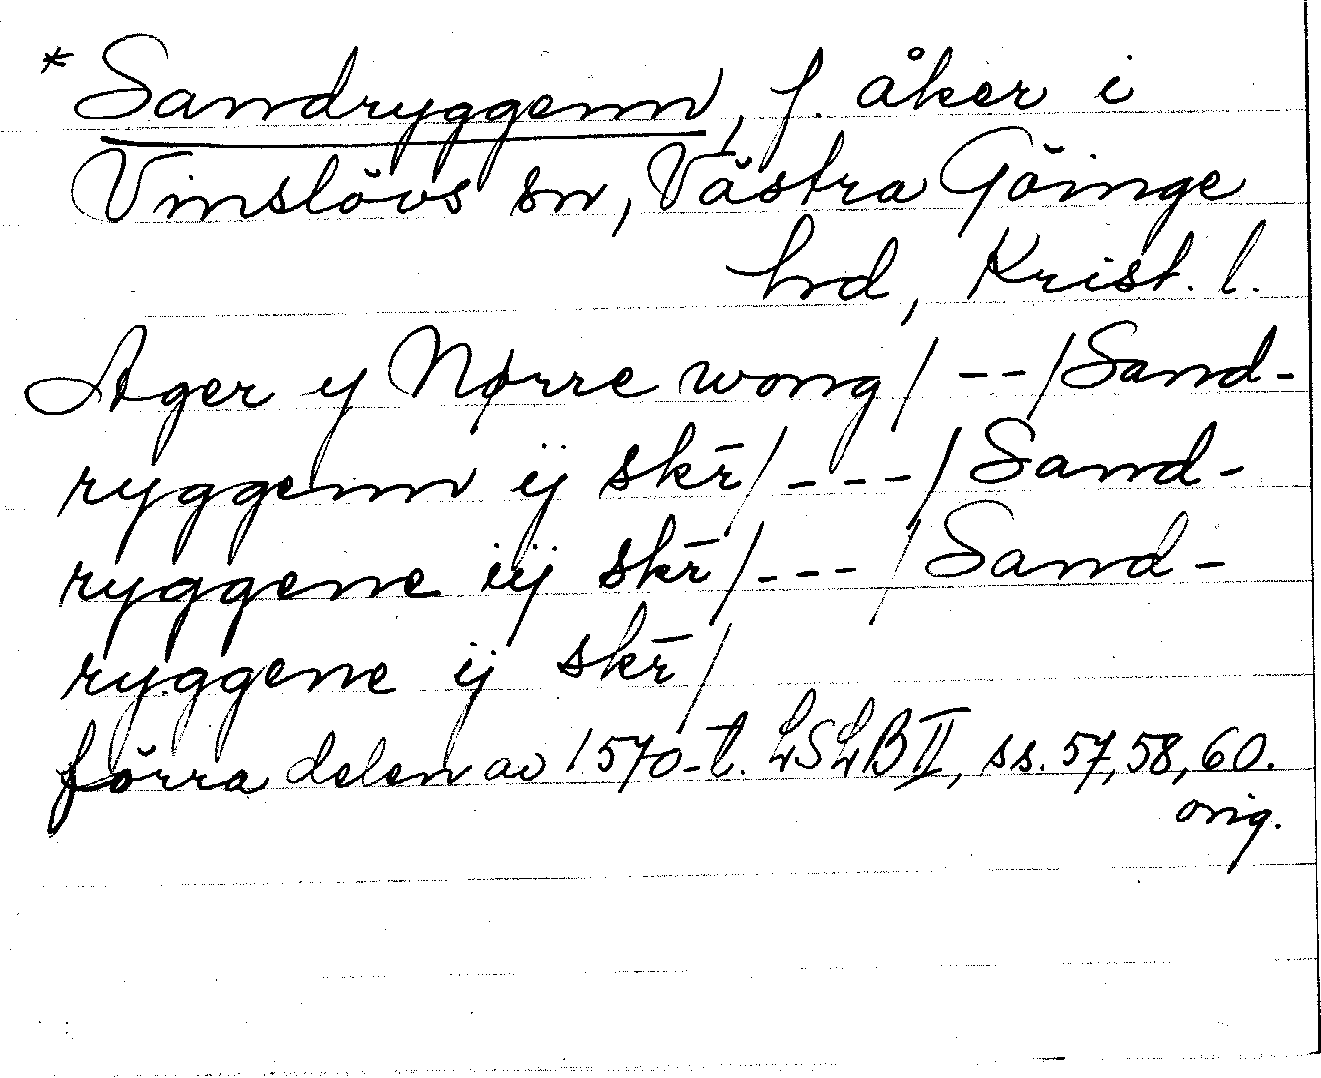 * Sandryggenn, f. åker i
Vinslövs sn, Västra Göinge
hrd, Krist. l.
Ager y Nørre wong / -- / Sand-
ryggenn ij skr̄ / --- / Sand-
ryggene iij skr̄ / --- / Sand-
ryggene ij skr̄ /
förra delen av 1570-t. LSLB II, ss. 57, 58, 60.
orig.